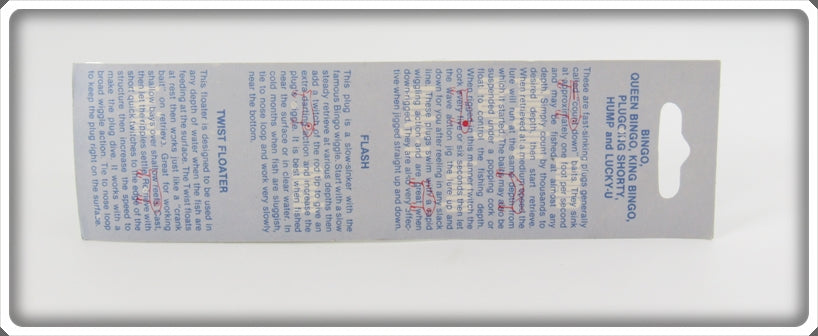 BINGO,
QUEEN BINGO, KING BINGO,
PLUGGING SHORTY,
HUMP and LUCKY-U
These are fast-sinking plugs generally
called "count down" lures. They sink
at approximately one foot per second
and may be fished at almost any
depth. Simply count by thousands to
desired depth then start retrieve.
When retrieved at a medium speed, the
lure will run at the same depth from
which it started. The baits may also be
suspended by a popping cork or
float to control the fishing depth.
When fishing in this manner twitch the
cork every five or six seconds then let
the wave action jig the lure up and
down for you after reeling in any slack
line. These plugs swim with a rapid
wiggling action and are great when
down-rigged. They are also very effec-
tive when jigged straight up and down.
FLASH
This plug is a slow-sinker with the
famous Bingo wiggle. Start with a slow
steady retrieve at various depths then
add a twitch of the rod tip to give an
extra darting action and increase the
plug's wiggle. It is best when fished
near the surface or in clear water. In
cold months when fish are sluggish,
tie to nose loop and work very slowly
near the bottom.
TWIST FLOATER
This floater is designed to be used in
any depth of water when the fish are
feeding at the surface. The Twist floats
at rest then works just like a "crank
bait" on retrieve. Great for working
shallow bays over shallow reefs. Cast,
then let the ripples settle. Retrieve with
short quick twitches to the edge of the
structure then increase the speed to
make the plug dive. It works with a
broad wiggle action. Tie to nose loop
to keep the plug right on the surface.